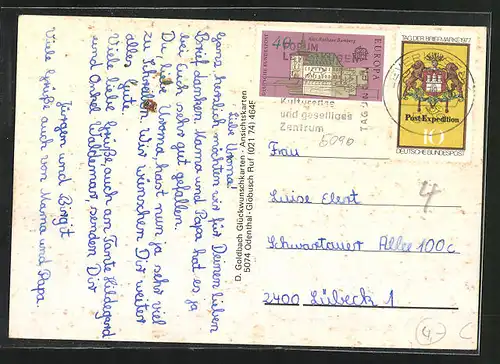 Liebe Uroma!
Ganz herzlich möchten wir für Deinen lieben
Brief danken. Mama und Papa hat es ja
bei Euch sehr gut gefallen.
Du, liebe Uroma hast nun ja sehr viel
zu schreiben. Wir wünschen Dir weiter
alles Gute.
Viele liebe Grüße auch an Tante Hildegard
und Onkel Waldemar, senden Dir
Jürgen und Birgit
Viele Grüße auch von Mama und Papa.
D. Goldbach Glückwunschkarten - Ansichtskarten
5074 Odenthal-Glöbusch Ruf (02174) 4645
40
Altes Rathaus Bamberg
EUROPA
FORUM
Kulturelles
und geselliges
Zentrum
5090
TAG DER BRIEFMARKE 1977
Post-Expedition
10
DEUTSCHE BUNDESPOST
Frau
Luise Elert
Schwartauer Allee 100c
2400 Lübeck 1
4,-
C